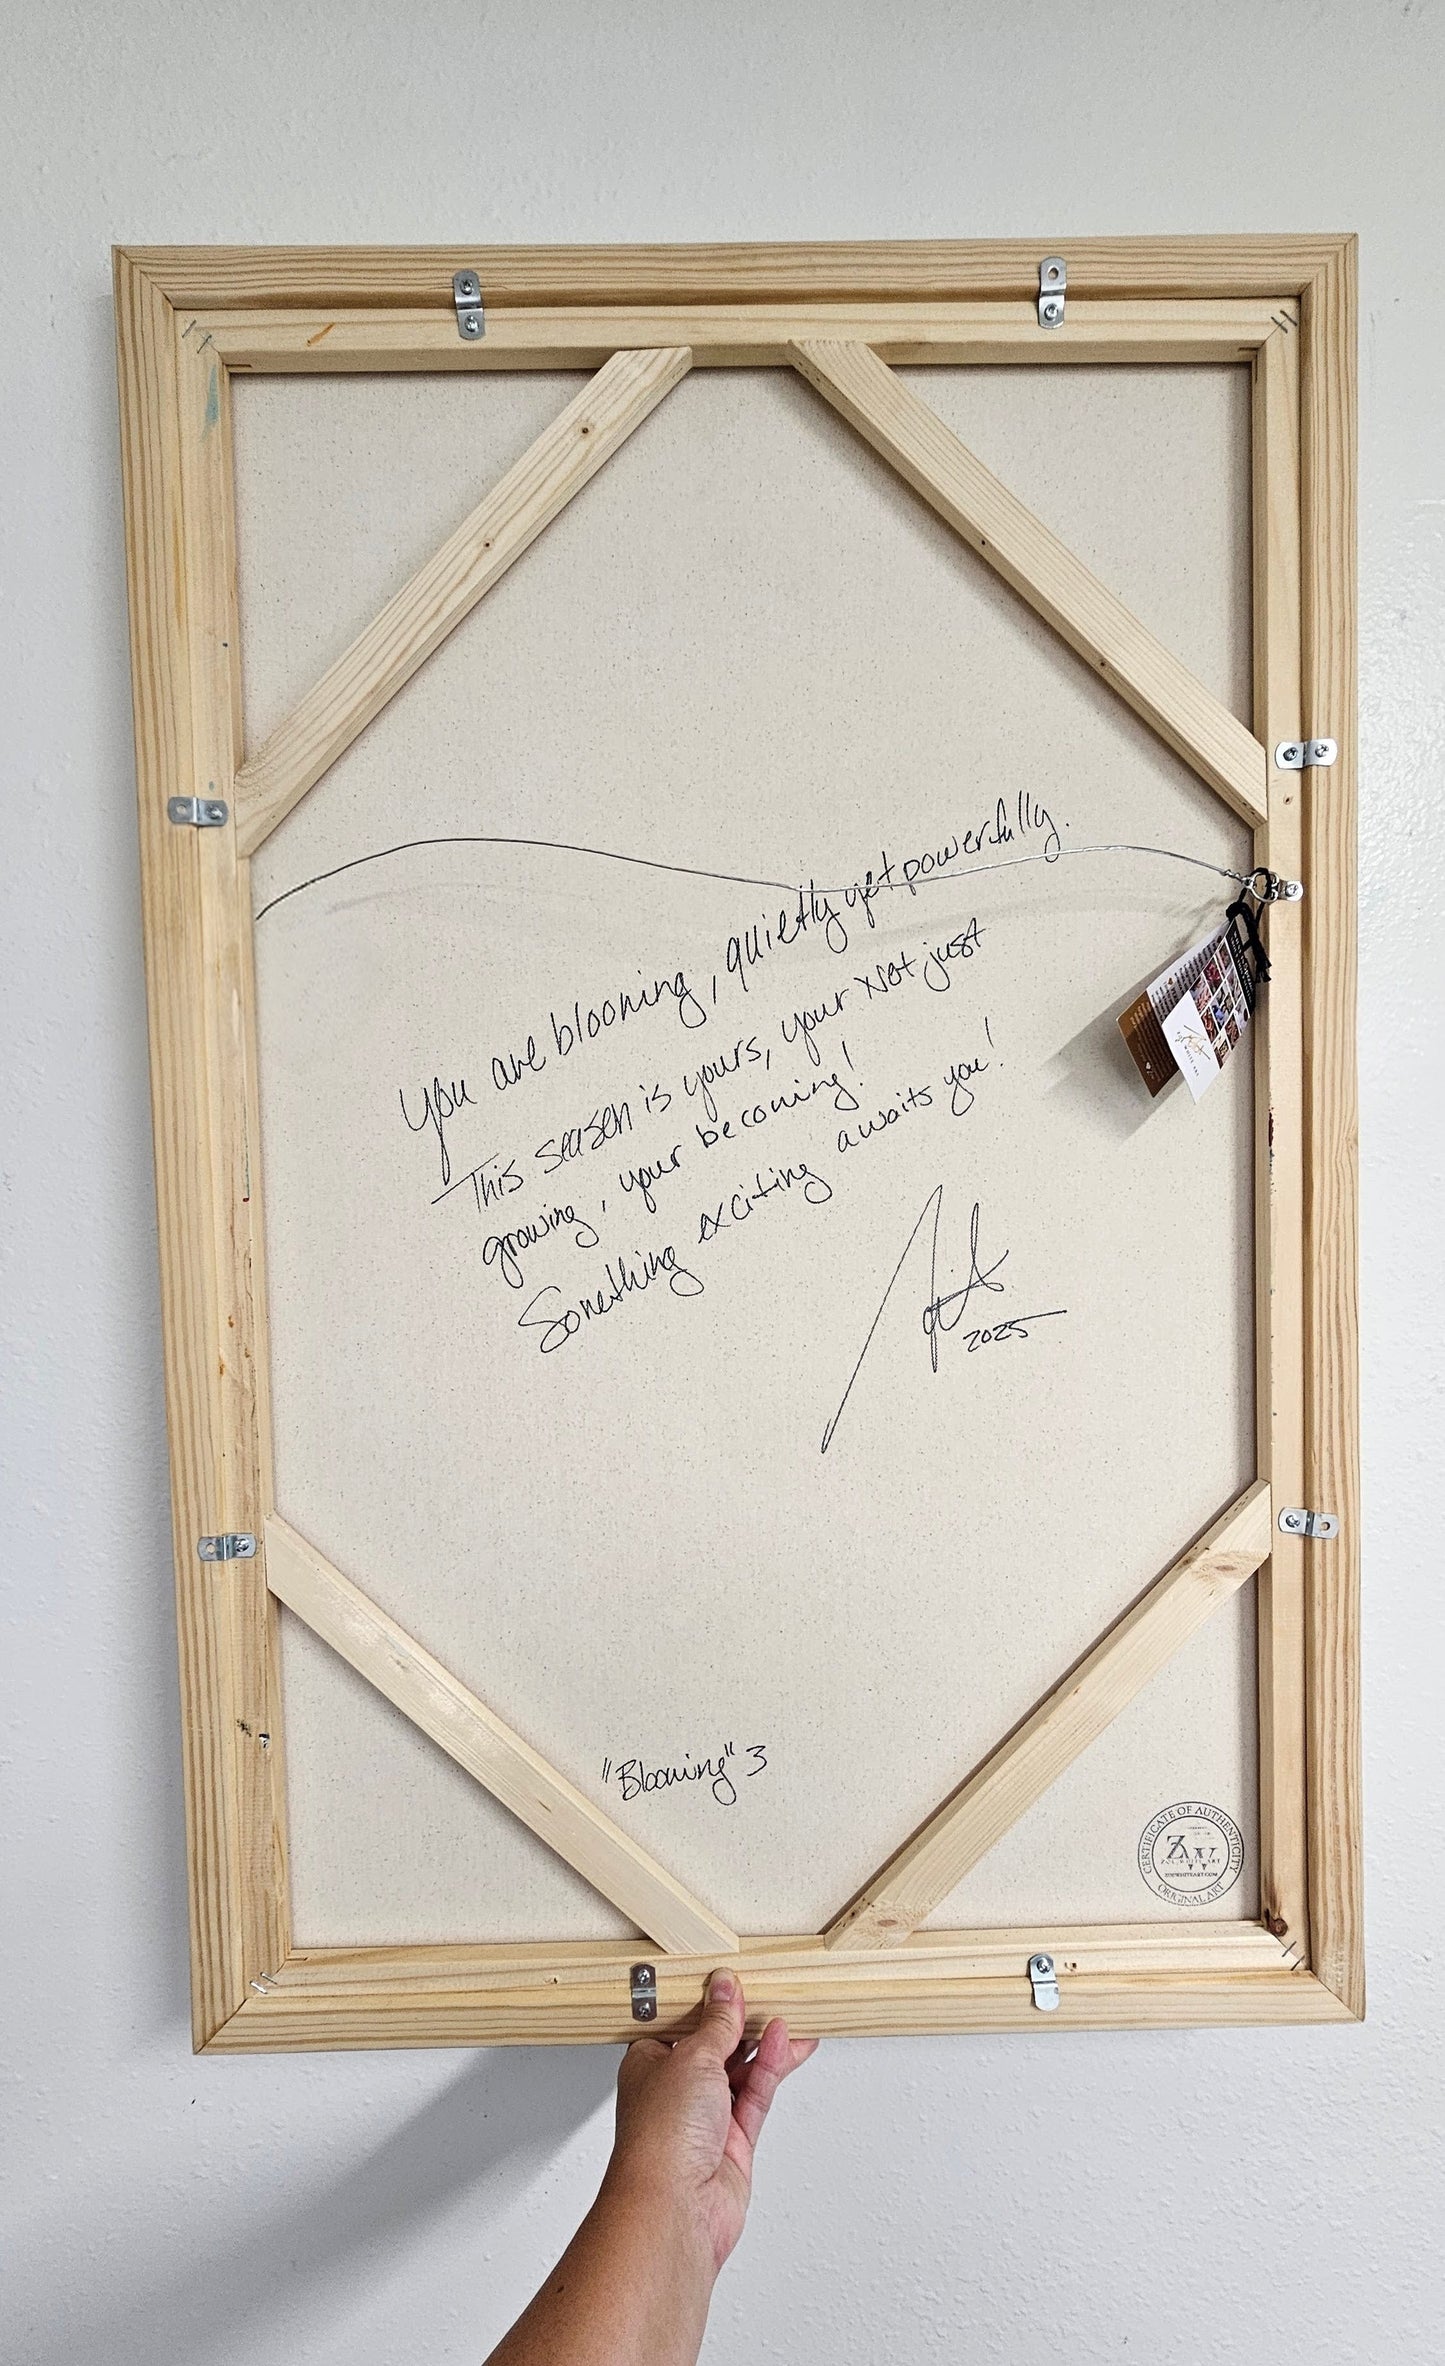 You are blooming, quietly yet powerfully.
This season is yours, your not just
growing, your becoming!
Something exciting awaits you!
2025
"Blooming" 3
CERTIFICATE OF AUTHENTICITY
ZW
ORIGINAL ART